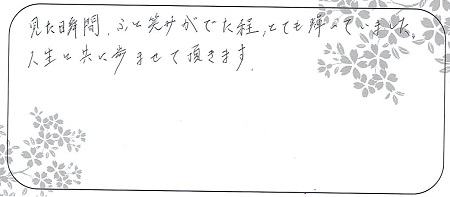 見た瞬間、ふと笑みがでた程、とても輝っていました。
人生と共に歩ませて頂きます.